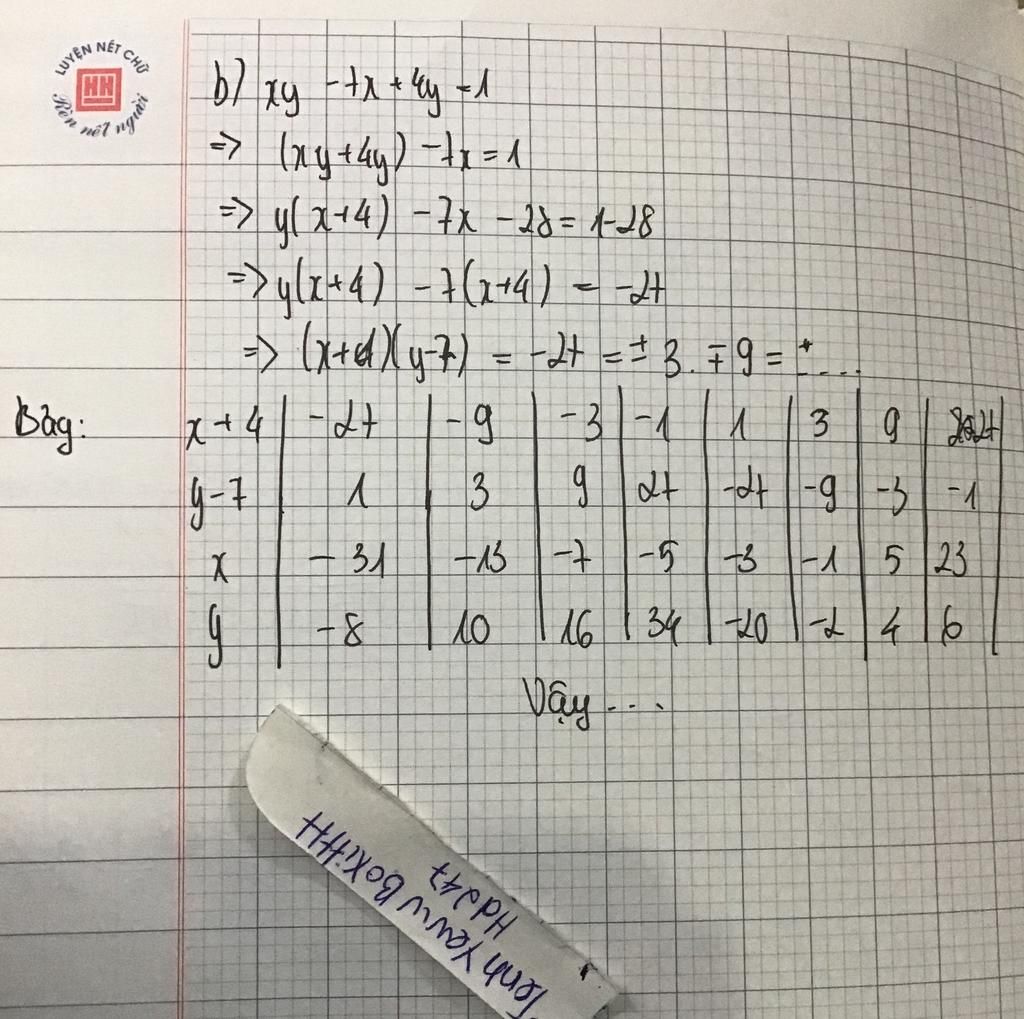 LUYỆN NÉT CHỮ
HH
Rèn nết người
b) xy - 7x + 4y = 1
=> (xy+4y) - 7x = 1
=> y(x+4) - 7x - 28 = 1-28
=> y(x+4) - 7(x+4) = -27
=> (x+4)(y-7) = -27 = ± 3. ∓ 9 = ± ....
Bảg: x+4 | -27 | -9 | -3 | -1 | 1 | 3 | 9 | 27
y-7 | 1 | 3 | 9 | 27 | -27 | -9 | -3 | -1
x | -31 | -13 | -7 | -5 | -3 | -1 | 5 | 23
y | -8 | 10 | 16 | 34 | -20 | -2 | 4 | 6
Vậy ....
Hdg47